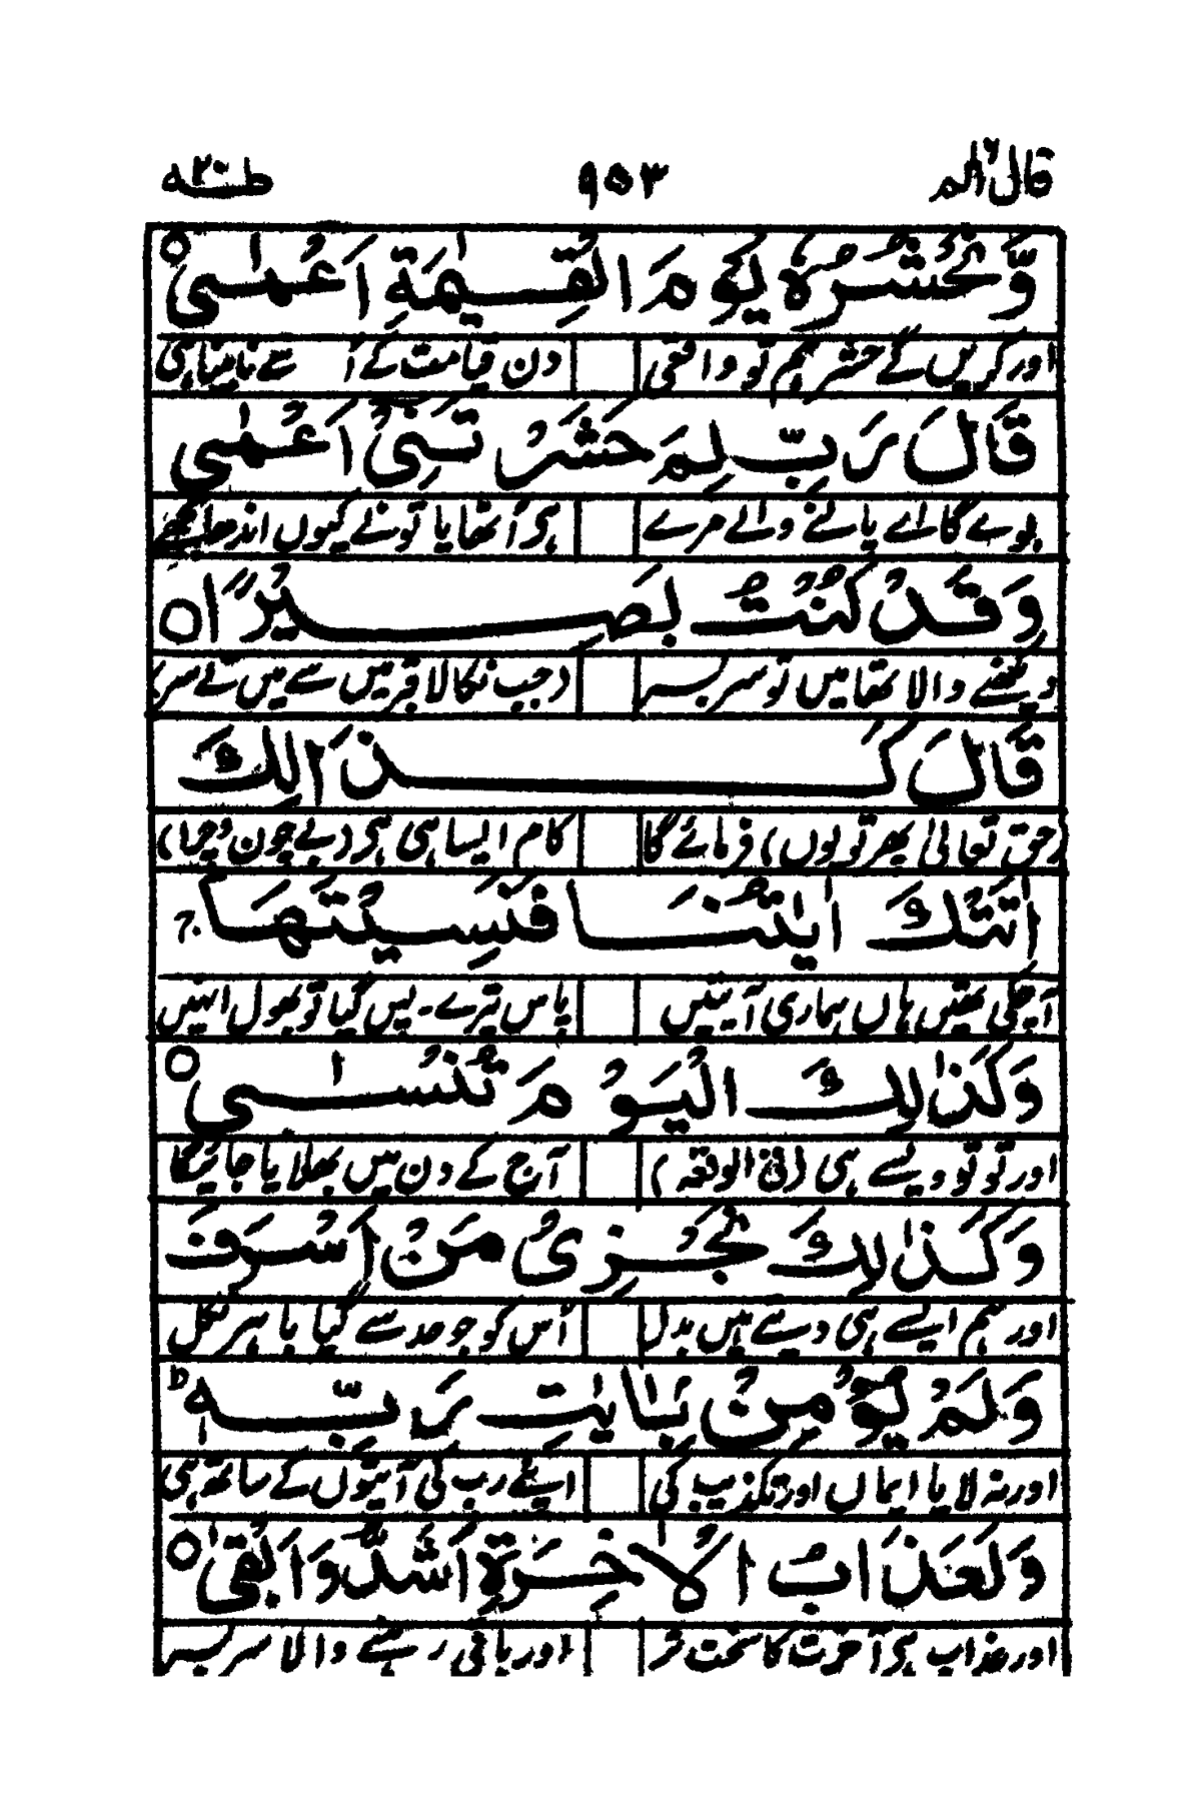 قال الم ۱۶ ۹۵۳ طٰهٰ ۲۰
وَّنَحْشُرُهٗ يَوْمَ الْقِيٰمَةِ اَعْمٰى ○
اور کریں گے حشر ہم تو واقعی دن قیامت کے اُسے نابینا ہی
قَالَ رَبِّ لِمَ حَشَرْتَنِيْٓ اَعْمٰى
بولے گا اے پالنے والے مرے ہی اُٹھایا تو نے کیوں اندھا مجھے
وَقَدْ كُنْتُ بَصِيْرًا ○
دیکھنے والا تھا میں تو سر بسر (جب نکالا قبر میں سے میں نے سر)
قَالَ كَذٰلِكَ
(حق تعالیٰ پھر تو یوں) فرمائے گا کام ایسا ہی ہی (بے چون و چرا)
اَتَتْكَ اٰيٰتُنَا فَنَسِيْتَهَا ۚ
آچکی تھیں ہاں ہماری آیتیں پاس تیرے۔ پس گیا تو بھول انہیں
وَكَذٰلِكَ الْيَوْمَ تُنْسٰى ○
اور تو تو ویسے ہی (فی الوقعہ) آج کے دن میں بھلایا جائیگا
وَكَذٰلِكَ نَجْزِيْ مَنْ اَسْرَفَ
اور ہم ایسے ہی دیتے ہیں بدل اُس کو جو حد سے گیا باہر نکل
وَلَمْ يُؤْمِنْۢ بِاٰيٰتِ رَبِّهٖ ؕ
اور نہ لایا ایماں اور تکذیب کی اپنے رب کی آیتوں کے ساتھ ہی
وَلَعَذَابُ الْاٰخِرَةِ اَشَدُّ وَاَبْقٰى ○
اور عذاب ہی آخرت کا سخت تر اور باقی رہنے والا سر بسر